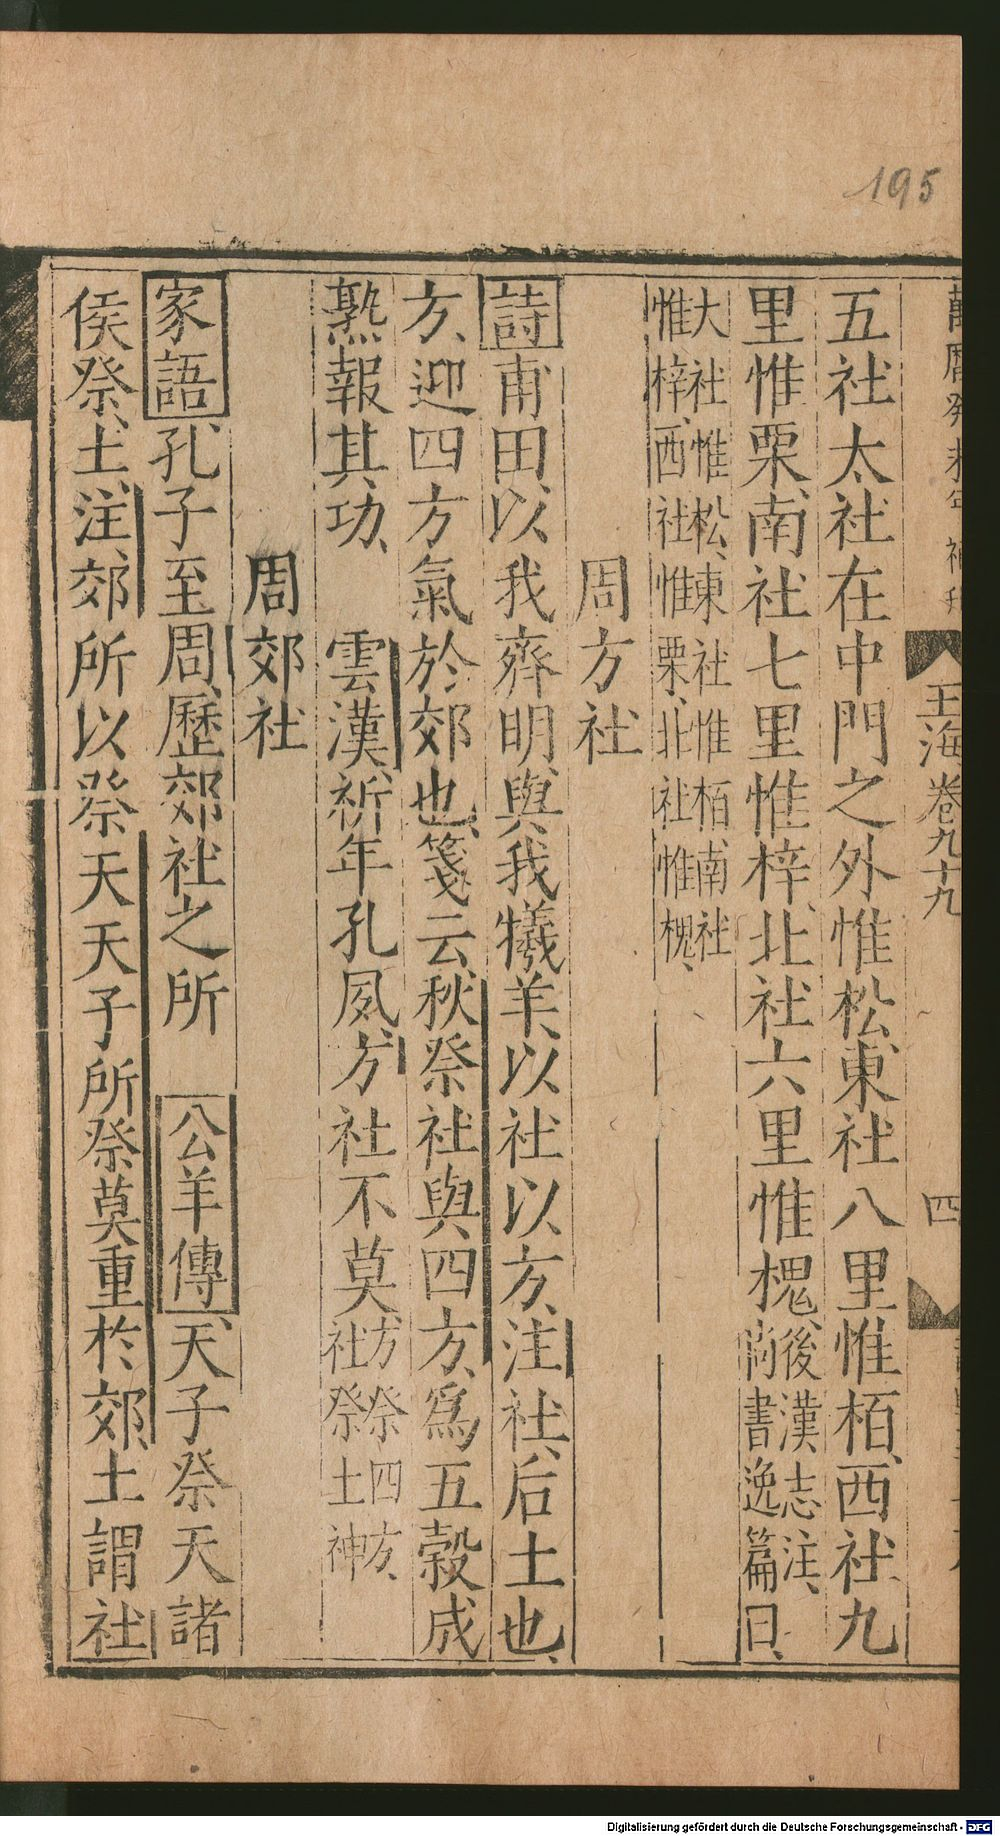 195
萬曆癸未年補刋
玉海卷九十九
四
五社太社在中門之外惟松東社八里惟栢西社九
里惟栗南社七里惟梓北社六里惟槐後漢志注尚書逸篇曰
大社惟松東社惟栢南社惟梓西社惟栗北社惟槐
周方社
詩甫田以我齊明與我犧羊以社以方注社后土也
方迎四方氣於郊也箋云秋祭社與四方爲五穀成
熟報其功 雲漢祈年孔夙方社不莫方祭四方社祭土神
周郊社
家語孔子至周歷郊社之所 公羊傳天子祭天諸
侯祭土注郊所以祭天天子所祭莫重於郊土謂社
Digitalisierung gefördert durch die Deutsche Forschungsgemeinschaft - DFG